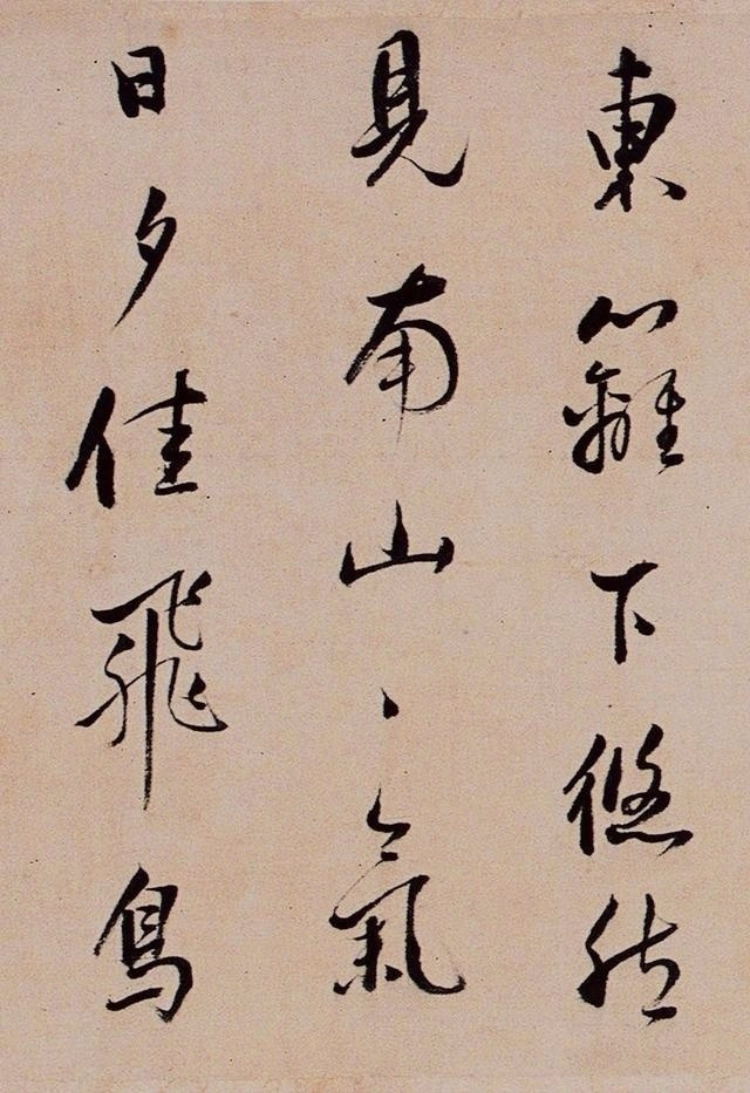 東籬下悠然
見南山〻氣
日夕佳飛鳥